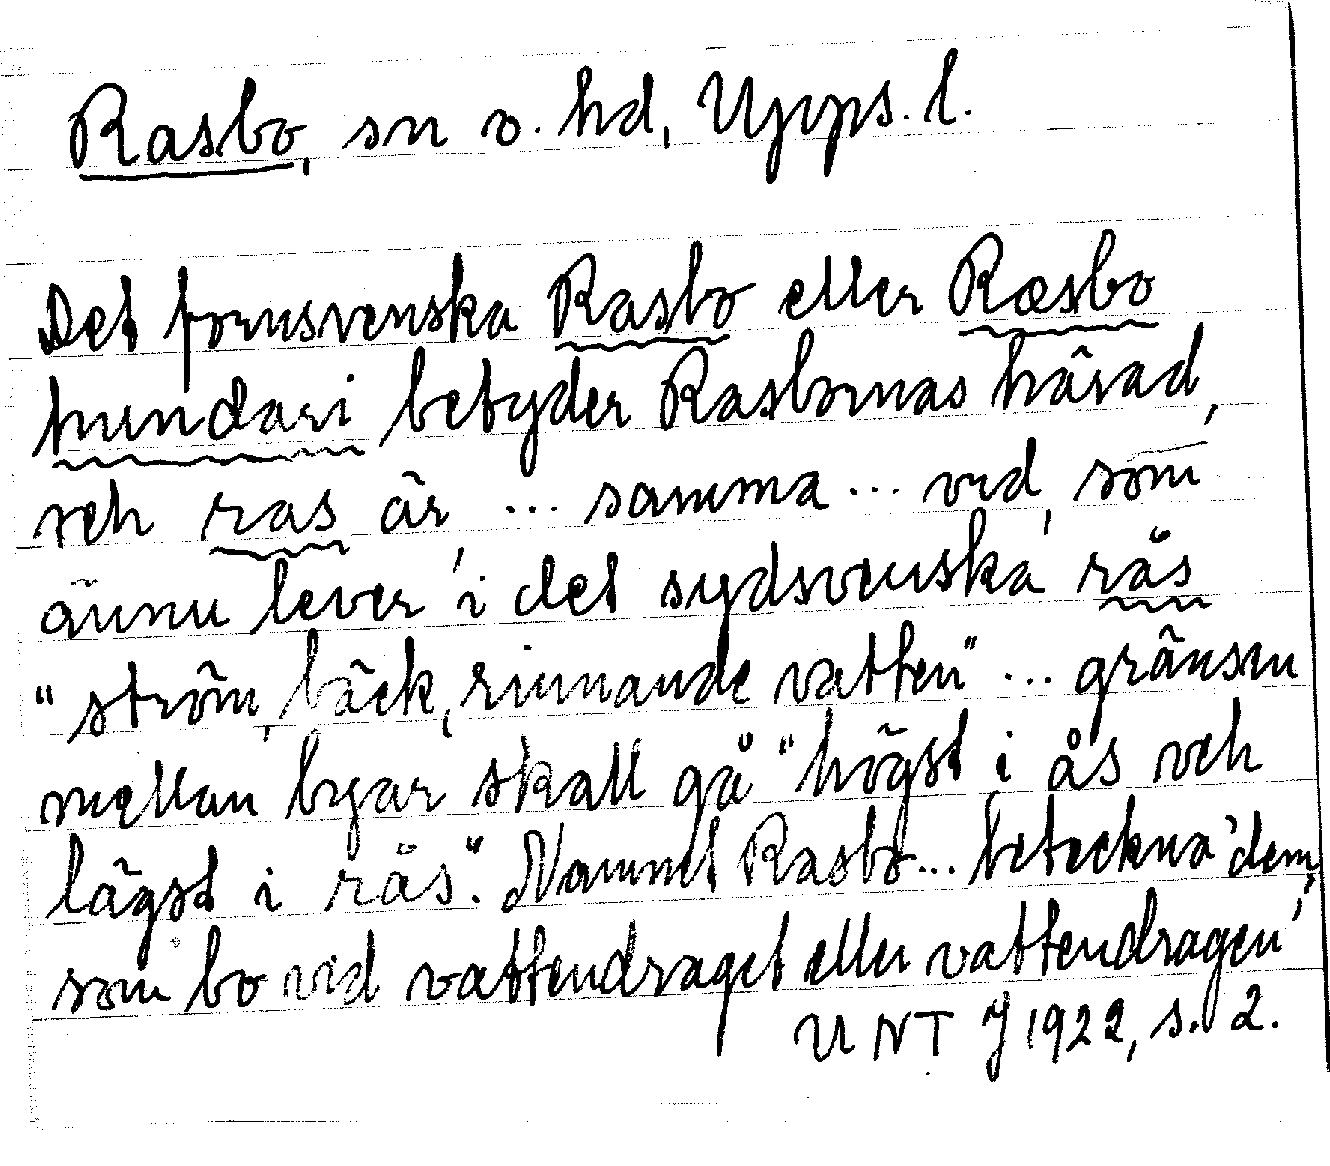 Rasbo, sn o. hd, Upps. l.
Det fornsvenska Rasbo eller Ræsbo
hundari betyder Rasbornas härad,
och ras är ... samma ... ord, som
ännu lever i det sydsvenska räs
"ström, bäck, rinnande vatten" ... gränsen
mellan byar skall gå "högst i ås och
lägst i räs". Namnet Rasbo... beteckna 'dem,
som bo vid vattendraget eller vattendragen'
UNT J 1922, s. 2.